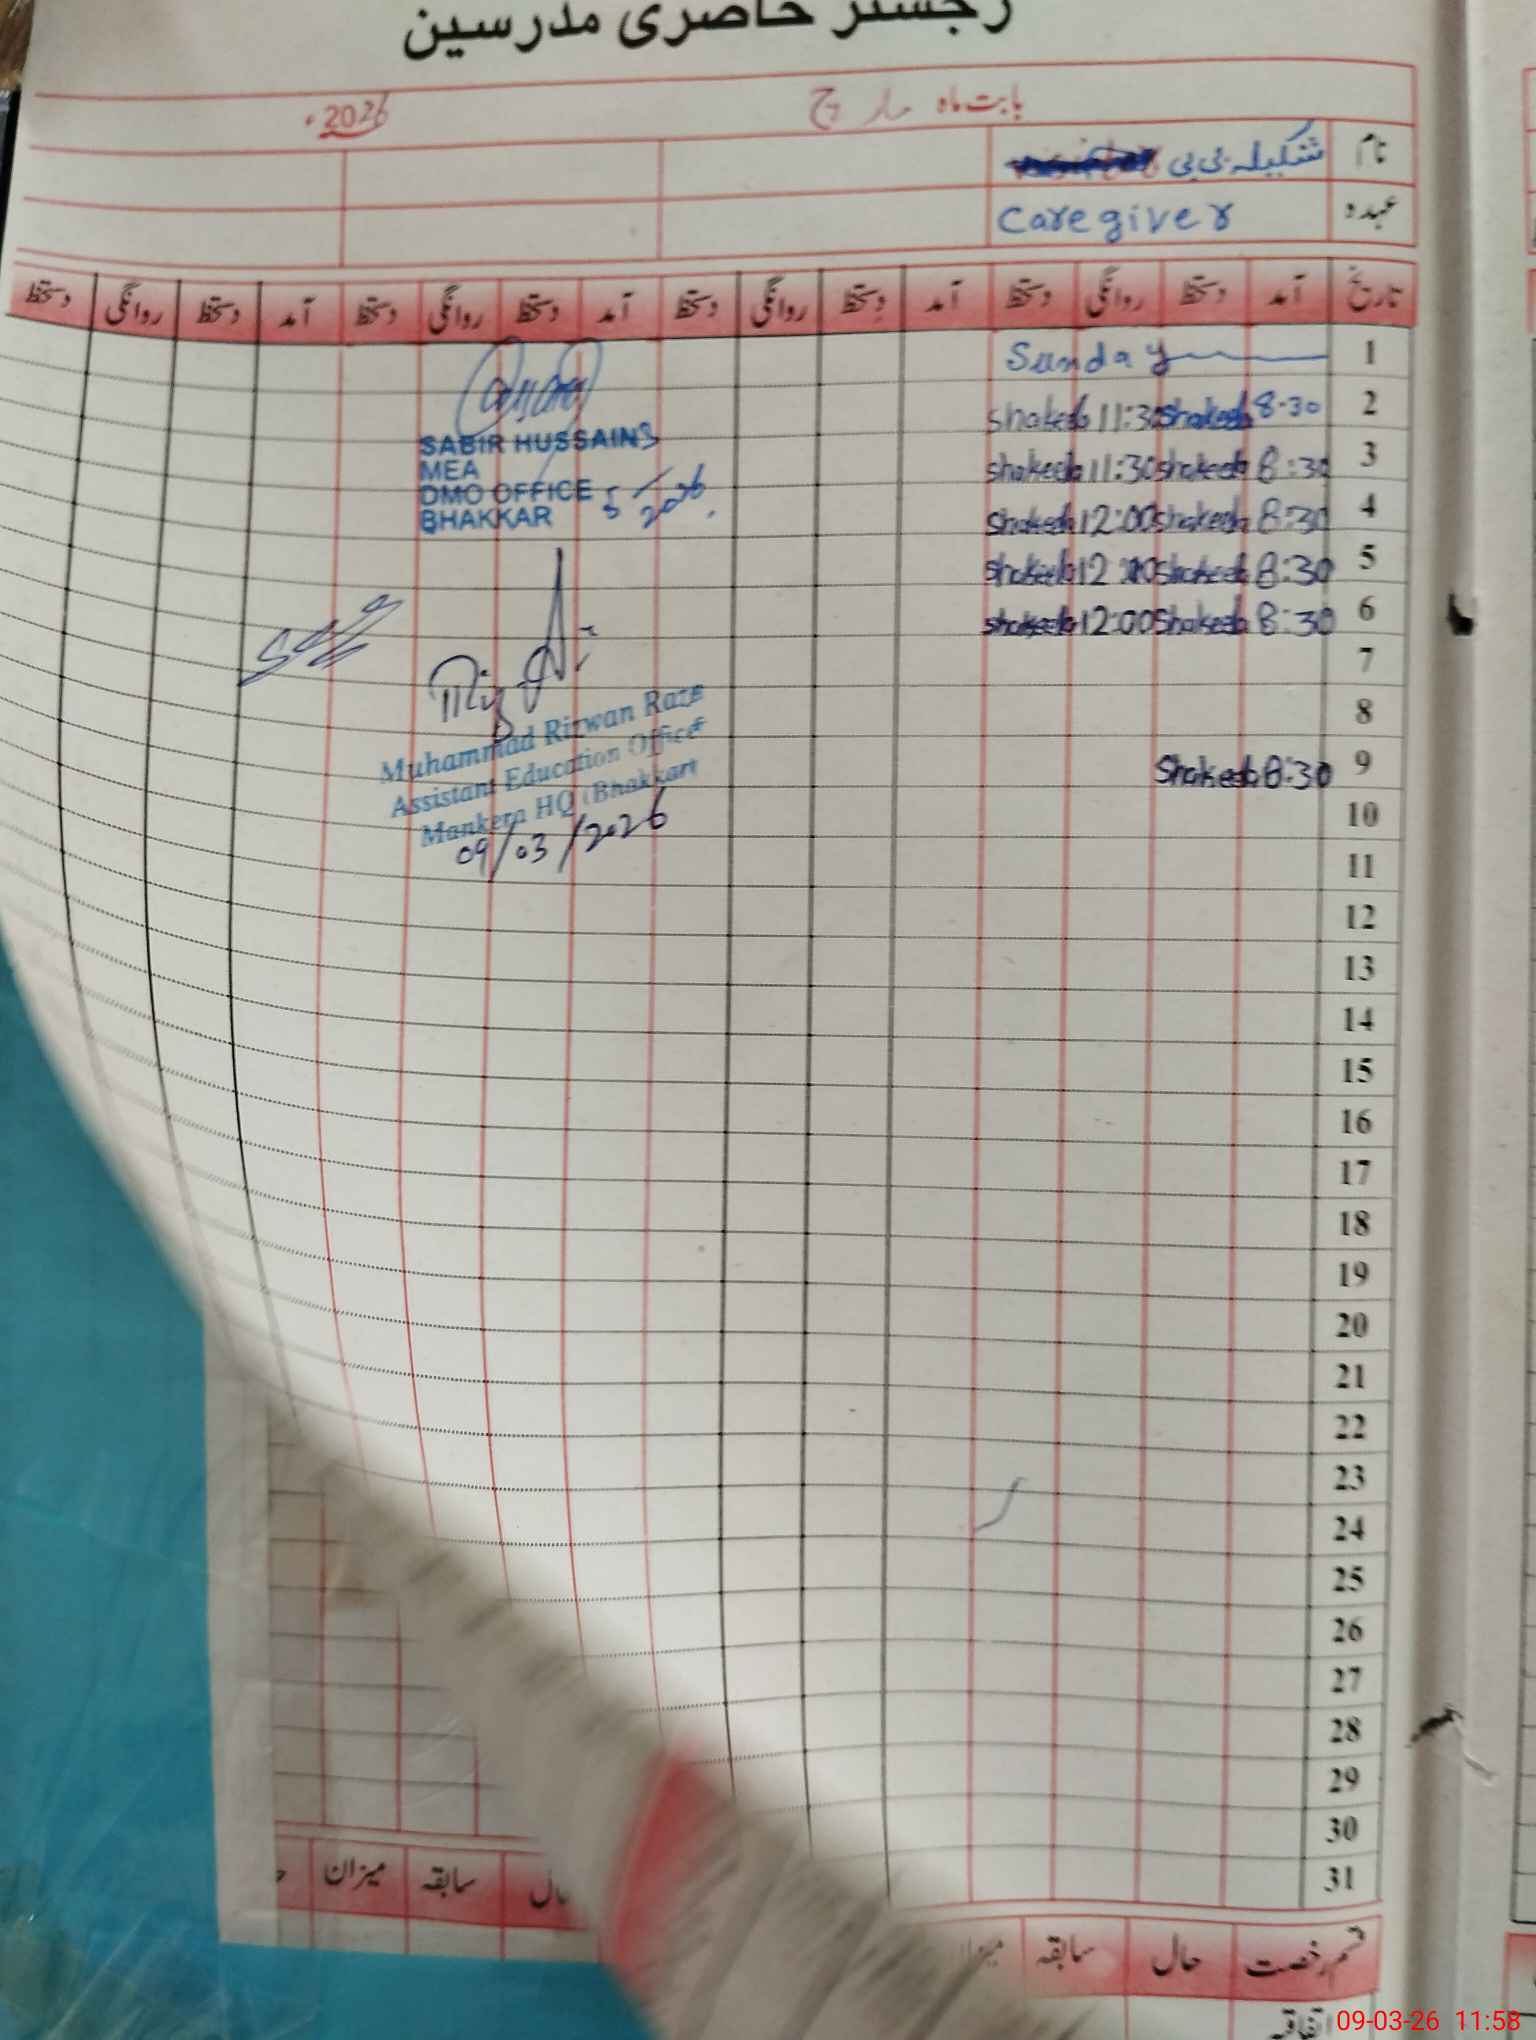 رجسٹر حاضری مدرسین
بابت ماہ مارچ 2026ء
نام شکیلہ بی بی
عہدہ Caregiver
تاریخ آمد دستخط روانگی دستخط آمد دستخط روانگی دستخط آمد دستخط روانگی دستخط آمد دستخط روانگی دستخط
1 Sunday
2 8-30 Shakeela 11:30 Shakeela
3 8:30 Shakeela 11:30 Shakeela
4 8:30 Shakeela 12:00 Shakeela
5 8:30 Shakeela 12:00 Shakeela
6 8:30 Shakeela 12:00 Shakeela
7
8
9 8:30 Shakeela
10
11
12
13
14
15
16
17
18
19
20
21
22
23
24
25
26
27
28
29
30
31
SABIR HUSSAIN
MEA
DMO OFFICE
BHAKKAR
5/3 2026
Muhammad Rizwan Raza
Assistant Education Officer
Mankera HQ (Bhakkar)
09/03/2026
قسم رخصت حال سابقہ میزان
سابقہ میزان
اتفاقیہ
09-03-26 11:58